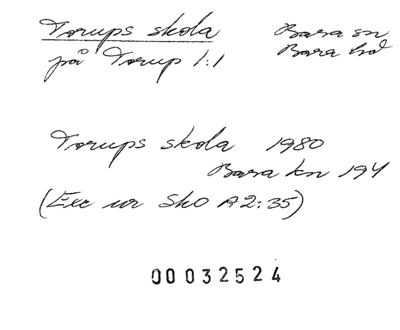 Torups skola
Bara sn
på Torup 1:1
Bara hd
Torups skola 1980
Bara kn 194
(Exc ur SkO A2:35)
00032524